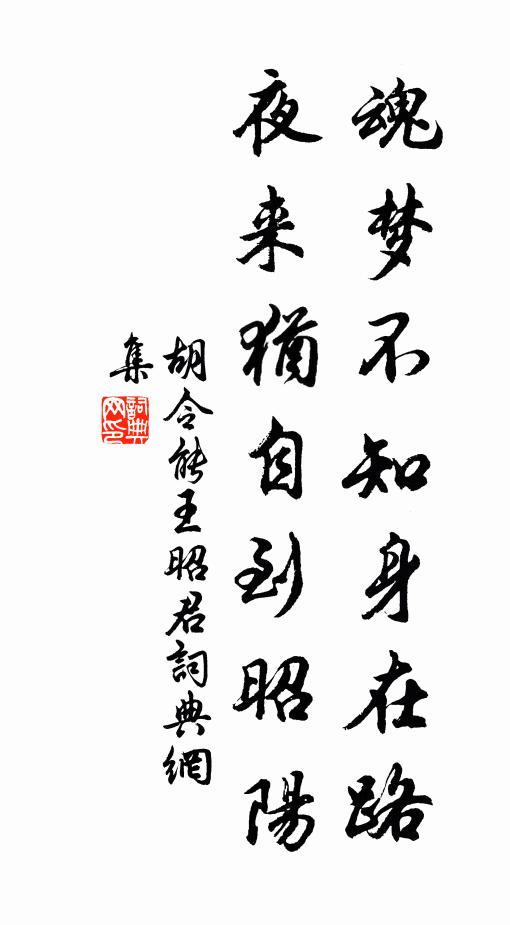 魂梦不知身在路
夜来猶自到昭陽
胡令能王昭君詞典網
集
詞典
网印